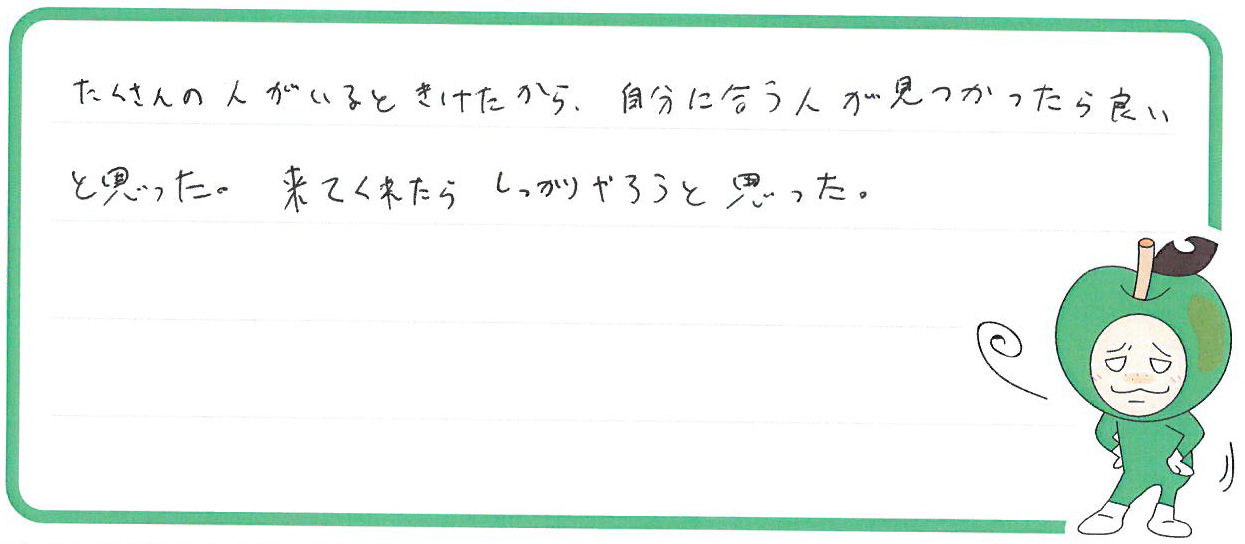 たくさんの人がいるときけたから、自分に合う人が見つかったら良い
と思った。 来てくれたら しっかりやろうと思った。